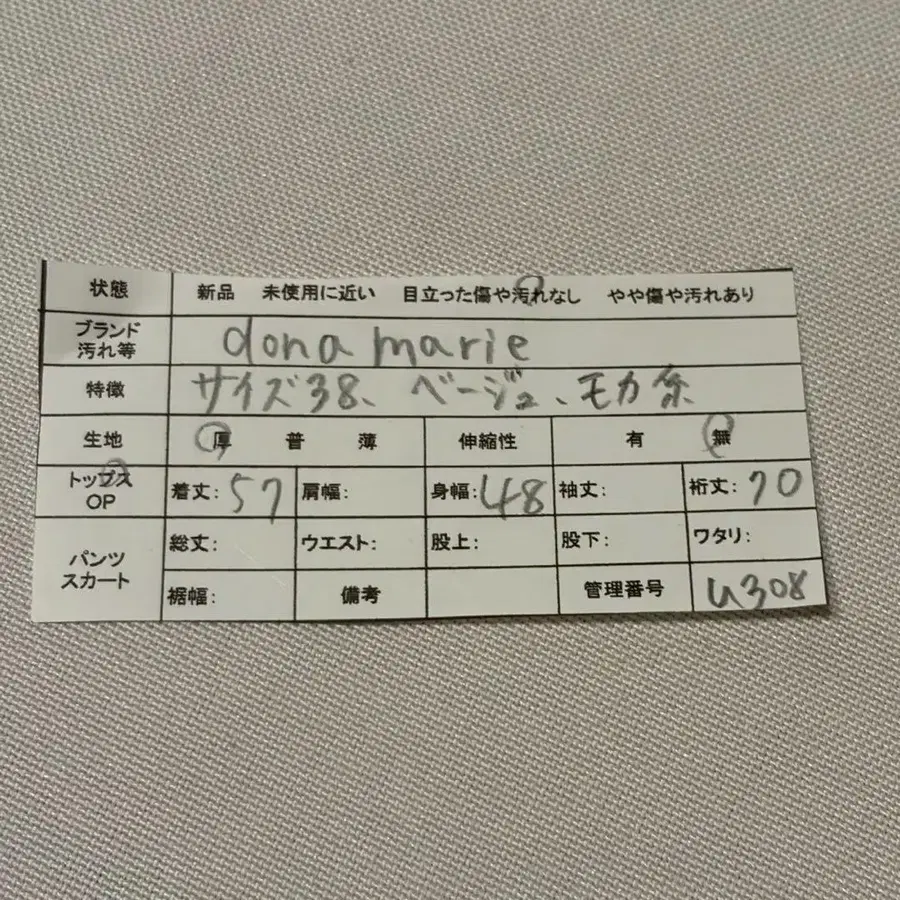 状態 新品 未使用に近い 目立った傷や汚れなし やや傷や汚れあり
ブランド
汚れ等 dona marie
特徴 サイズ38、ベージュ、モカ系
生地 厚 普 薄 伸縮性 有 無
トップス
OP 着丈:57 肩幅: 身幅:48 袖丈: 裄丈:70
パンツ
スカート 総丈: ウエスト: 股上: 股下: ワタリ:
裾幅: 備考 管理番号 u308